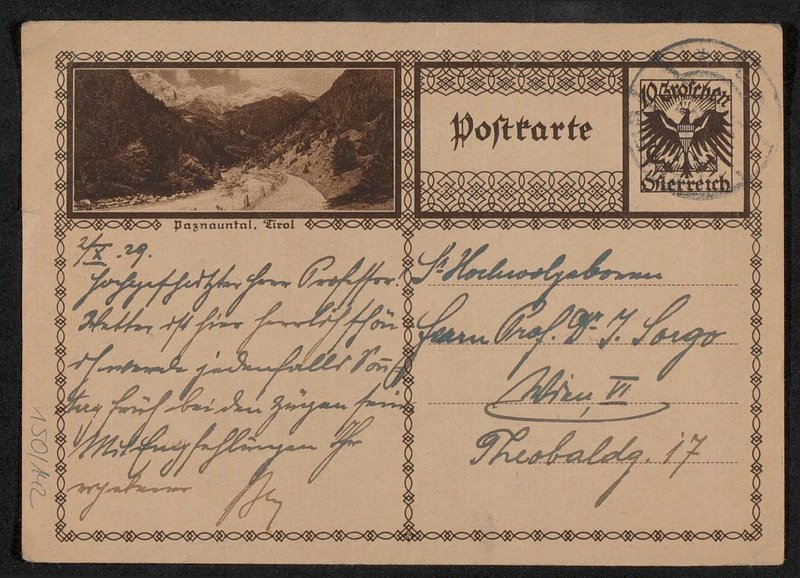 Paznauntal, Tirol
Postkarte
10 Groschen
Österreich
2/X. 29.
Hochgeschätzter Herr Professor.
Wetter ist hier herrlich schön
ich werde jedenfalls Sonn-
tag früh bei den Zügen sein
Mit Empfehlungen Ihr
ergebener
Sr Hochwolgeboren
Herrn Prof. Dr J. Sorgo
Wien, VI
Theobaldg. 17
150/142